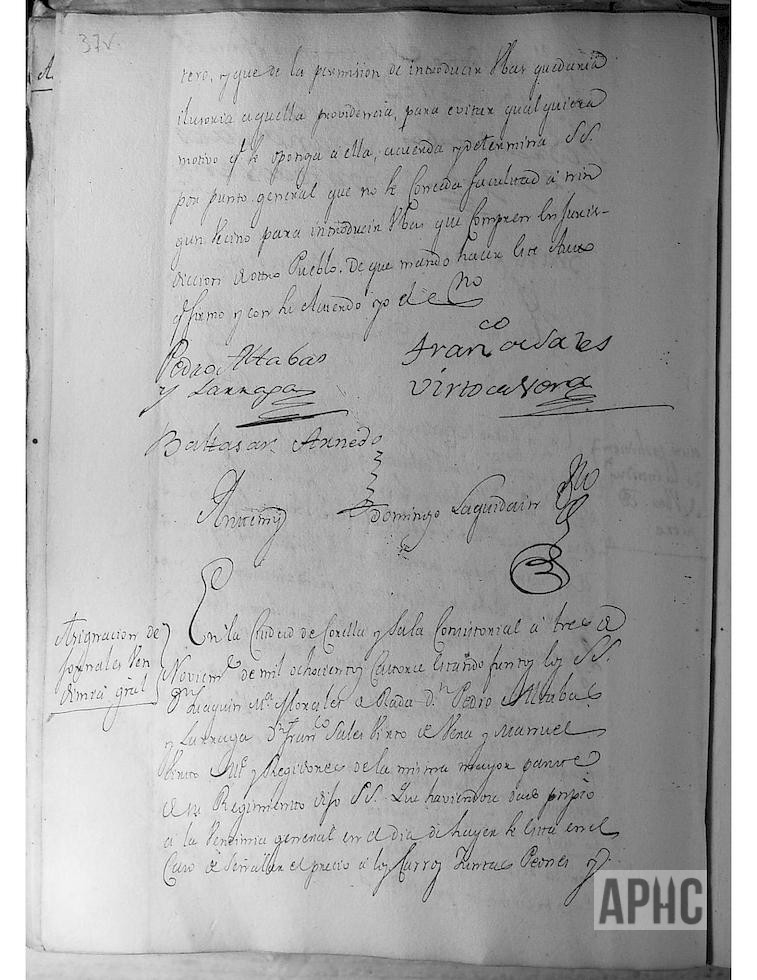 37v.
A
tero, y que de la permision de introducir Vbas quedaria
ilusoria aquella providencia, para evitar qualquiera
motivo qe. se oponga a ella, acuerda y determina SS.
por punto general que no se Conceda facultad a nin
gun Vecino para introducir Vbas que Compren en Juris-
diccion de otro Pueblo. De que mando hacer este Auto
qe firmo y con se Acuerdo yo el essno
Pedro Alttabas
y Larraga
Franco de Sales
Virto de Vera
Baltasar Arnedo
Antemi
Domingo Laguidain
Asignacion de
Jornales Ven
dimia gral
En la Ciudad de Corella y Sala Consistorial a tres de
Noviemre de mil ochocientos Catorce estando juntos los SS.
Dn Joaquin Ma. Morales de Rada Dn. Pedro Alttabas
y Larraga Dn Franco Sales Virto de Vera y Manuel
Virto Alle y Regidores de la misma mayor parte
de su Regimiento dijo SS. Que haviendose dado prpio
a la Vendimia general en el dia de hayer se está en el
Caso de Señalar el precio a los Carros Juntas Peones y
APHC